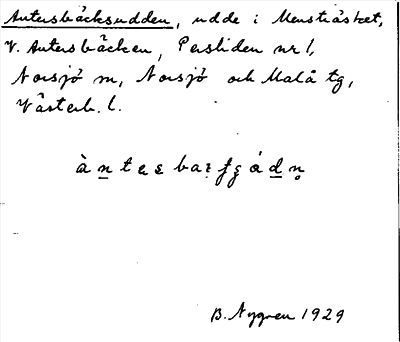 Antersbäcksudden, udde i Menträsket,
V. Antersbäcken, Persliden nr 1,
Norsjö sn, Norsjö och Malå tg,
Västerb. l.
B. Nygren 1929